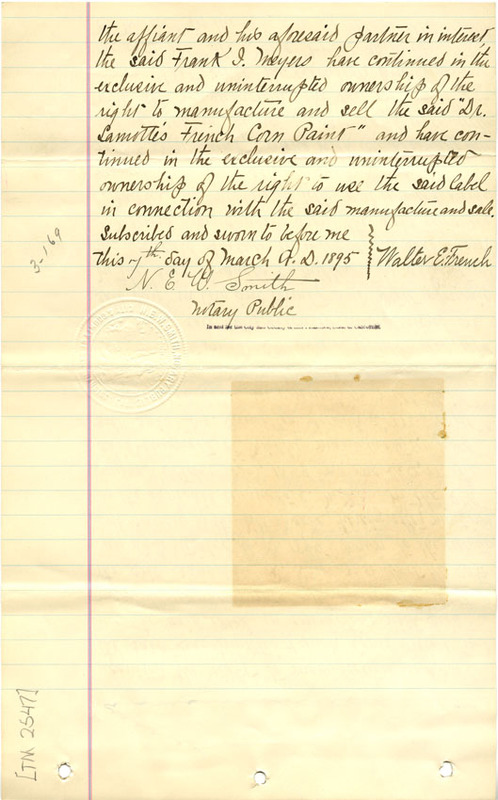 the affiant and his aforesaid partner in interest,
the said Frank I. Meyers have continued in the
exclusive and uninterrupted ownership of the
right to manufacture and sell the said "Dr.
Lamotte's French Corn Paint" and have con-
tinued in the exclusive and uninterrupted
ownership of the right to use the said label
in connection with the said manufacture and sale.
Subscribed and sworn to before me
this 7th day of March A.D. 1895 Walter E. French
N. E. W. Smith
Notary Public
3-169
[TM 2547]